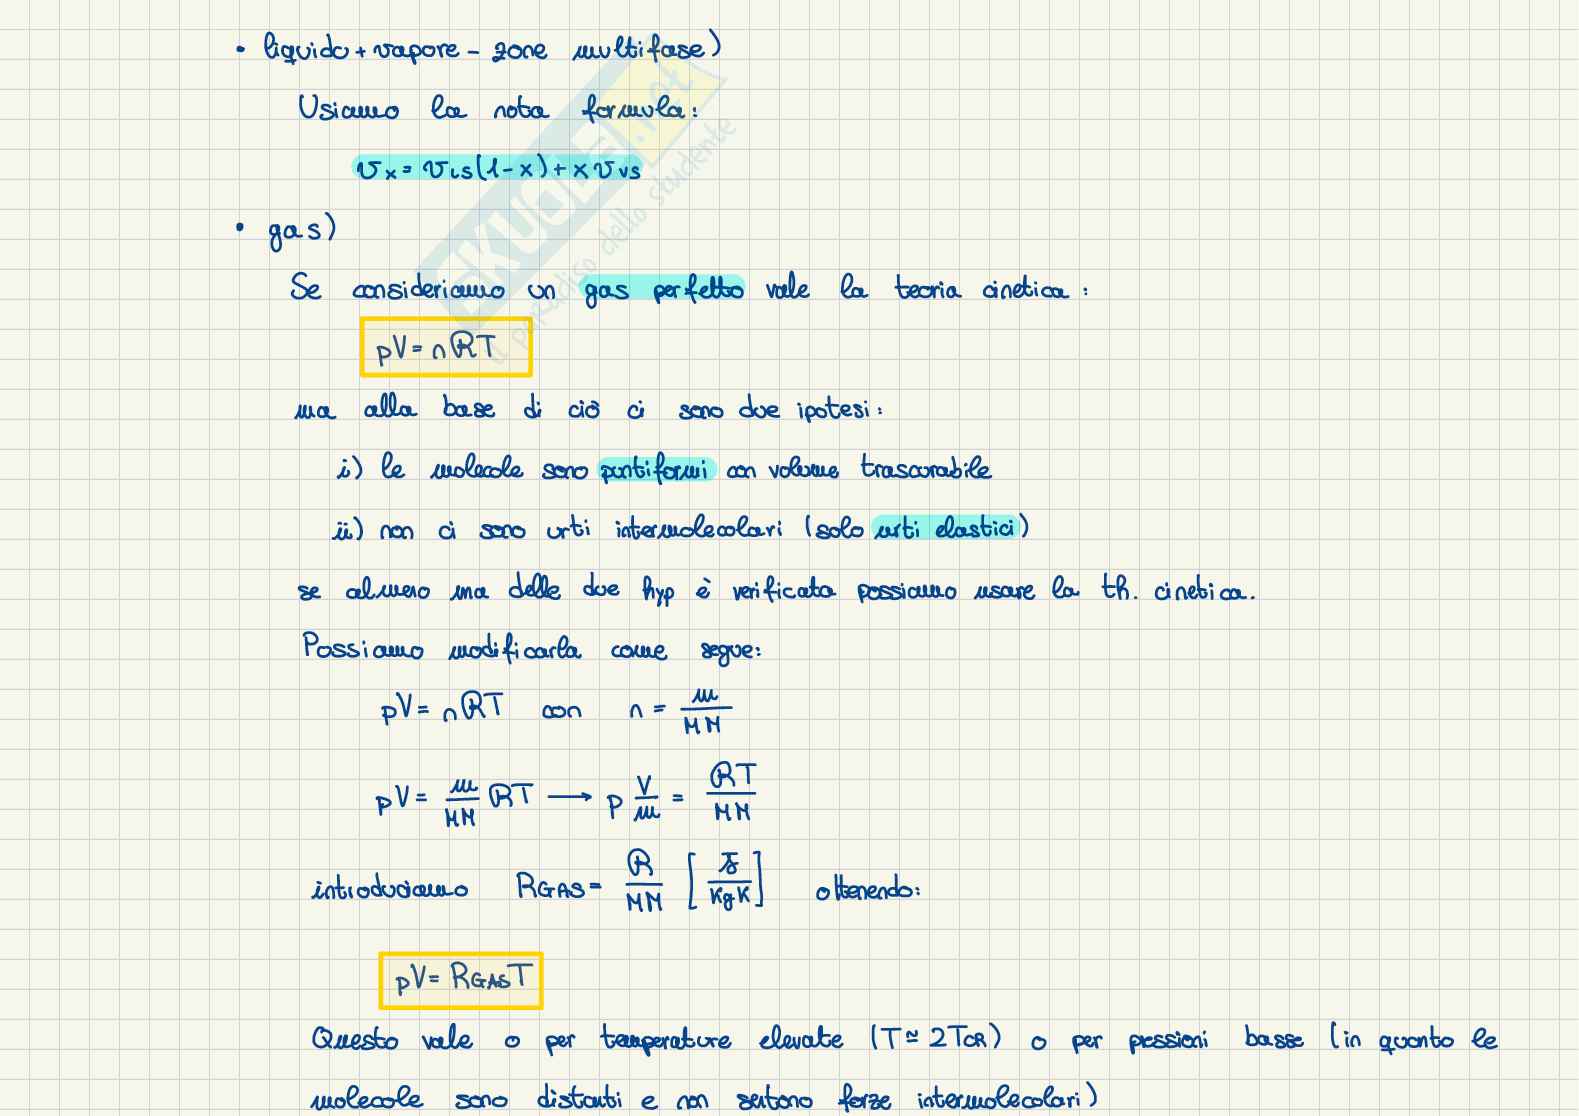 • liquido + vapore - zone multifase)
Usiamo la nota formula:
vx = vls(1-x) + x vvs
• gas)
Se consideriamo un gas perfetto vale la teoria cinetica:
pV = nRT
ma alla base di ciò ci sono due ipotesi:
i) le molecole sono puntiformi con volume trascurabile
ii) non ci sono urti intermolecolari (solo urti elastici)
se almeno una delle due hyp è verificata possiamo usare la th. cinetica.
Possiamo modificarla come segue:
pV = nRT con n = m/MM
pV = m/MM RT → p V/m = RT/MM
introduciamo RGAS = R/MM [J/KgK] ottenendo:
pV = RGAS T
Questo vale o per temperature elevate (T ≃ 2TCR) o per pressioni basse (in quanto le
molecole sono distanti e non sentono forze intermolecolari)
SKUOLA.net
il paradiso dello studente